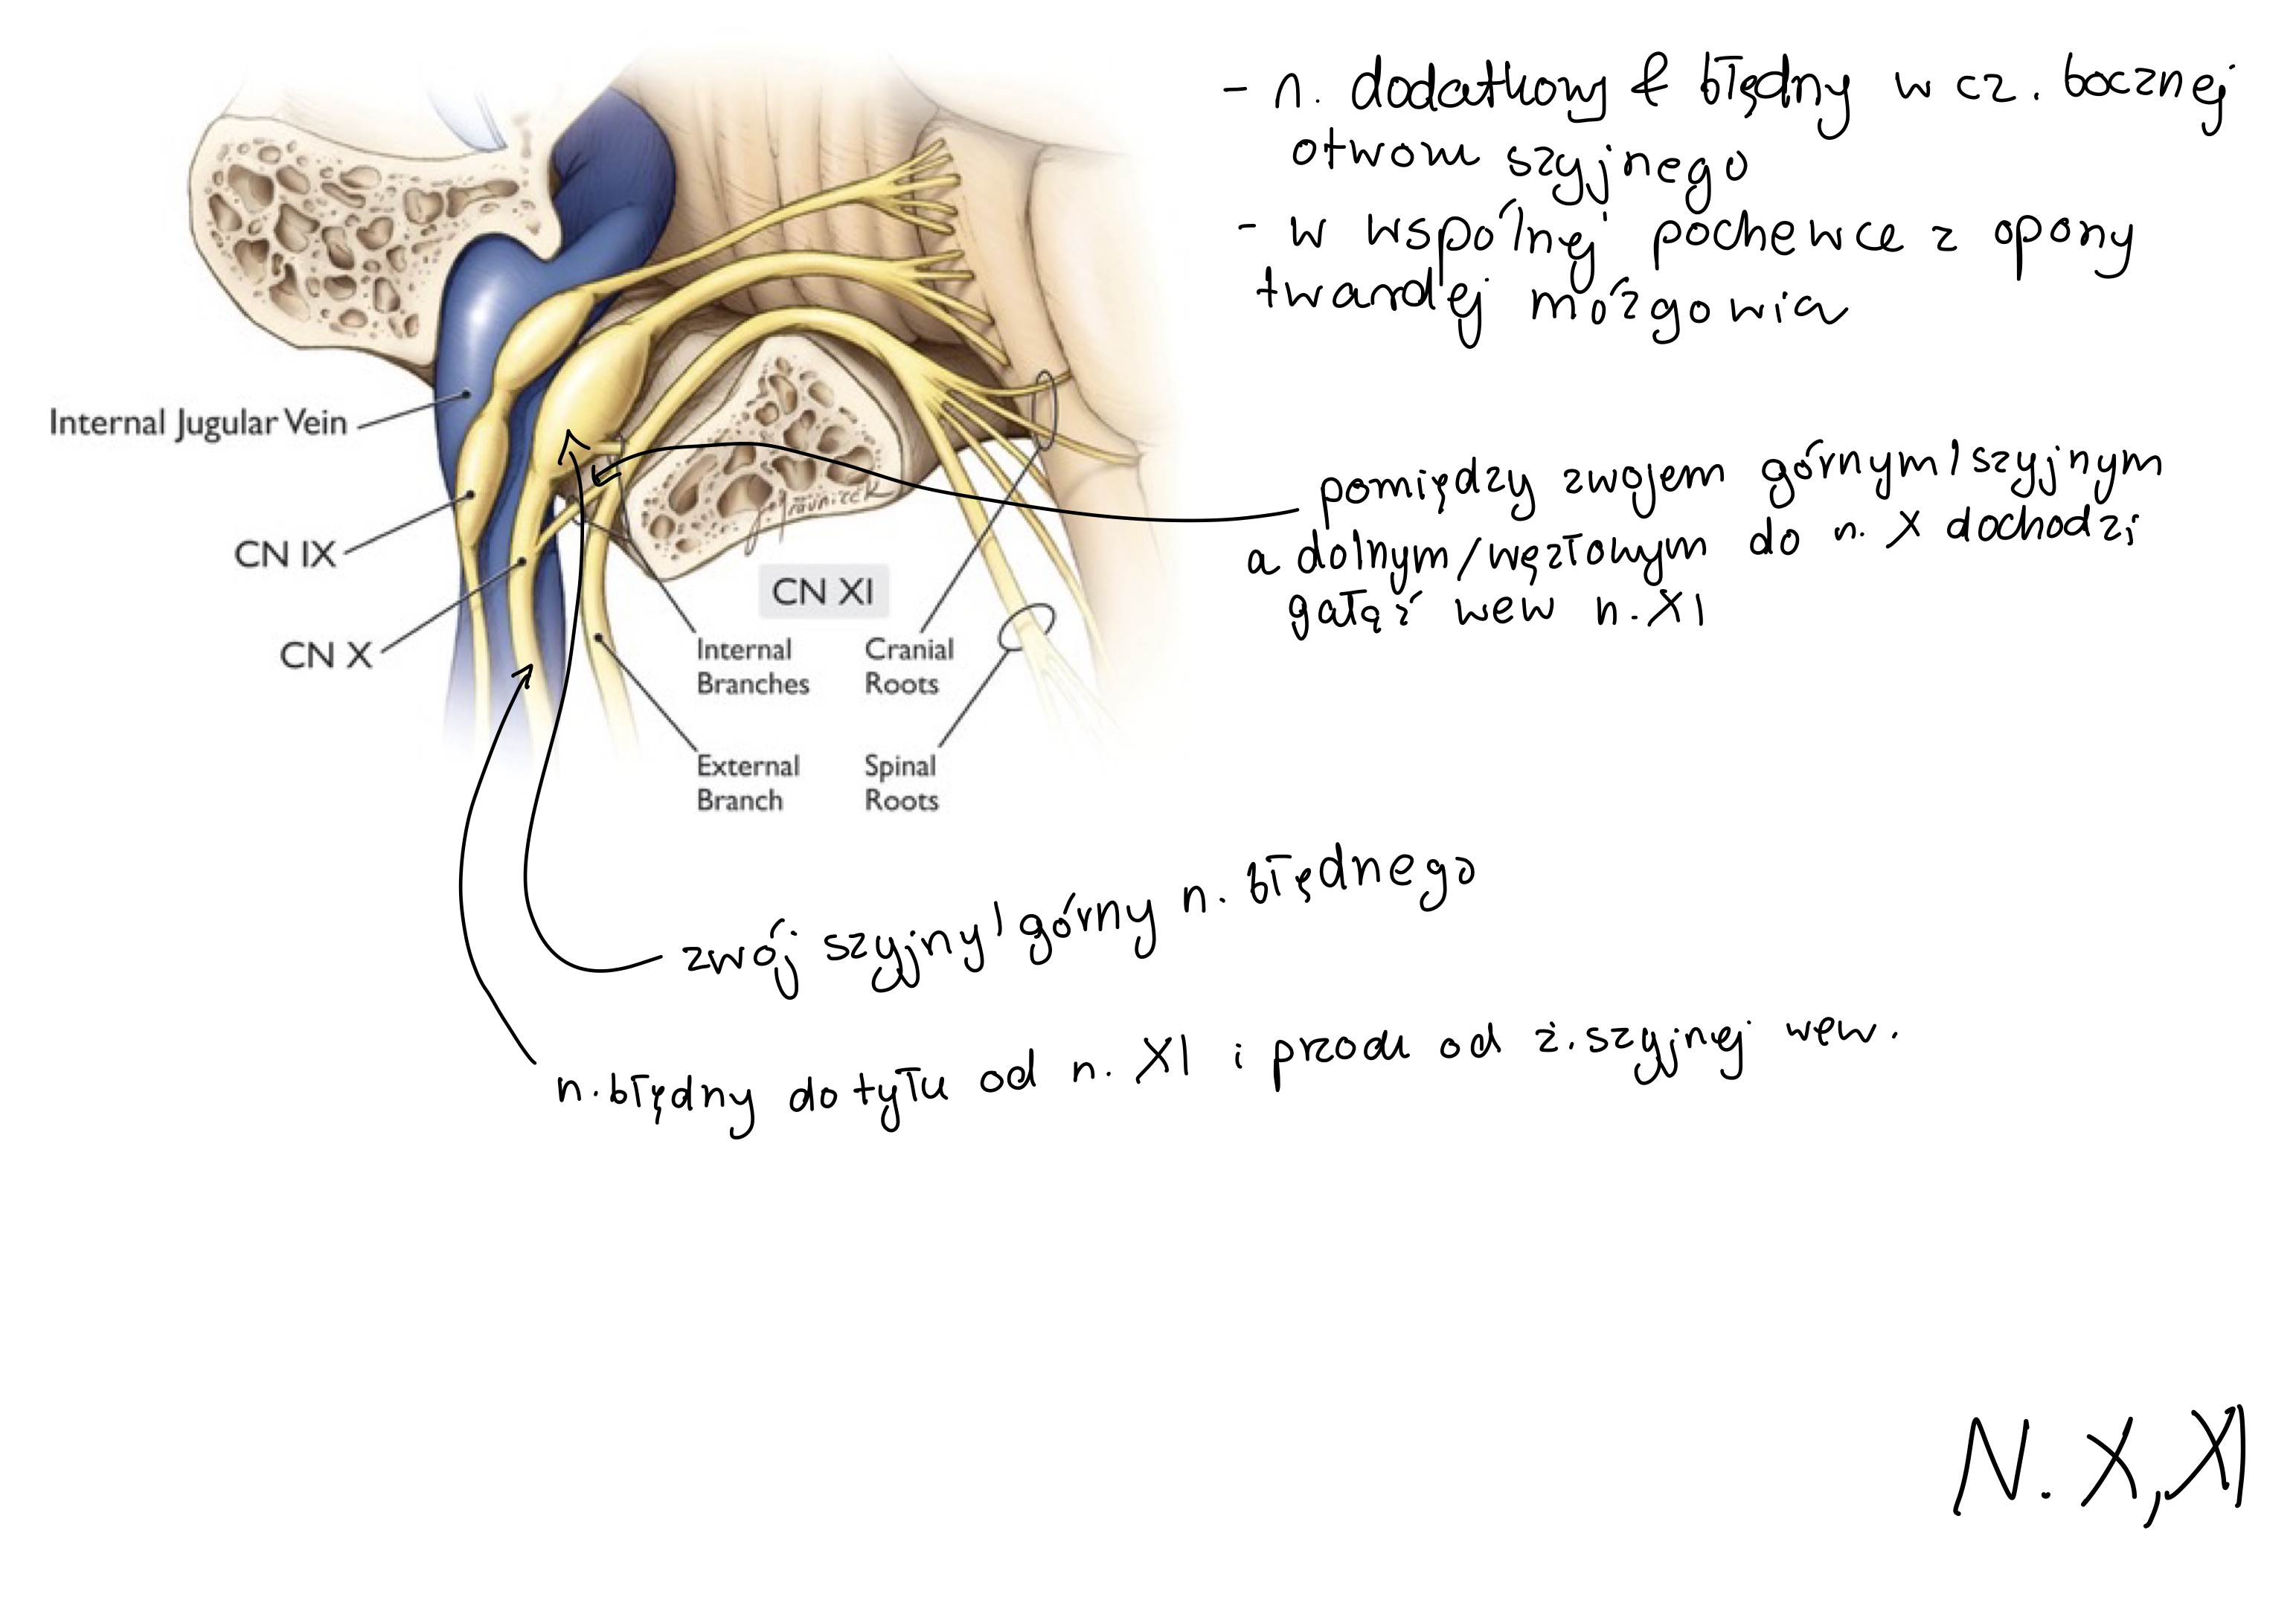 - n. dodatkowy & błędny w cz. bocznej
otworu szyjnego
- w wspólnej pochewce z opony
twardej mózgowia
Internal Jugular Vein
pomiędzy zwojem górnym/szyjnym
a dolnym/węzłowym do n. X dochodzi
gałąź wew n. XI
CN IX
CN XI
CN X
Internal
Branches
Cranial
Roots
External
Branch
Spinal
Roots
zwój szyjny/górny n. błędnego
n. błędny do tyłu od n. XI i przodu od ż. szyjnej wew.
N. X, XI